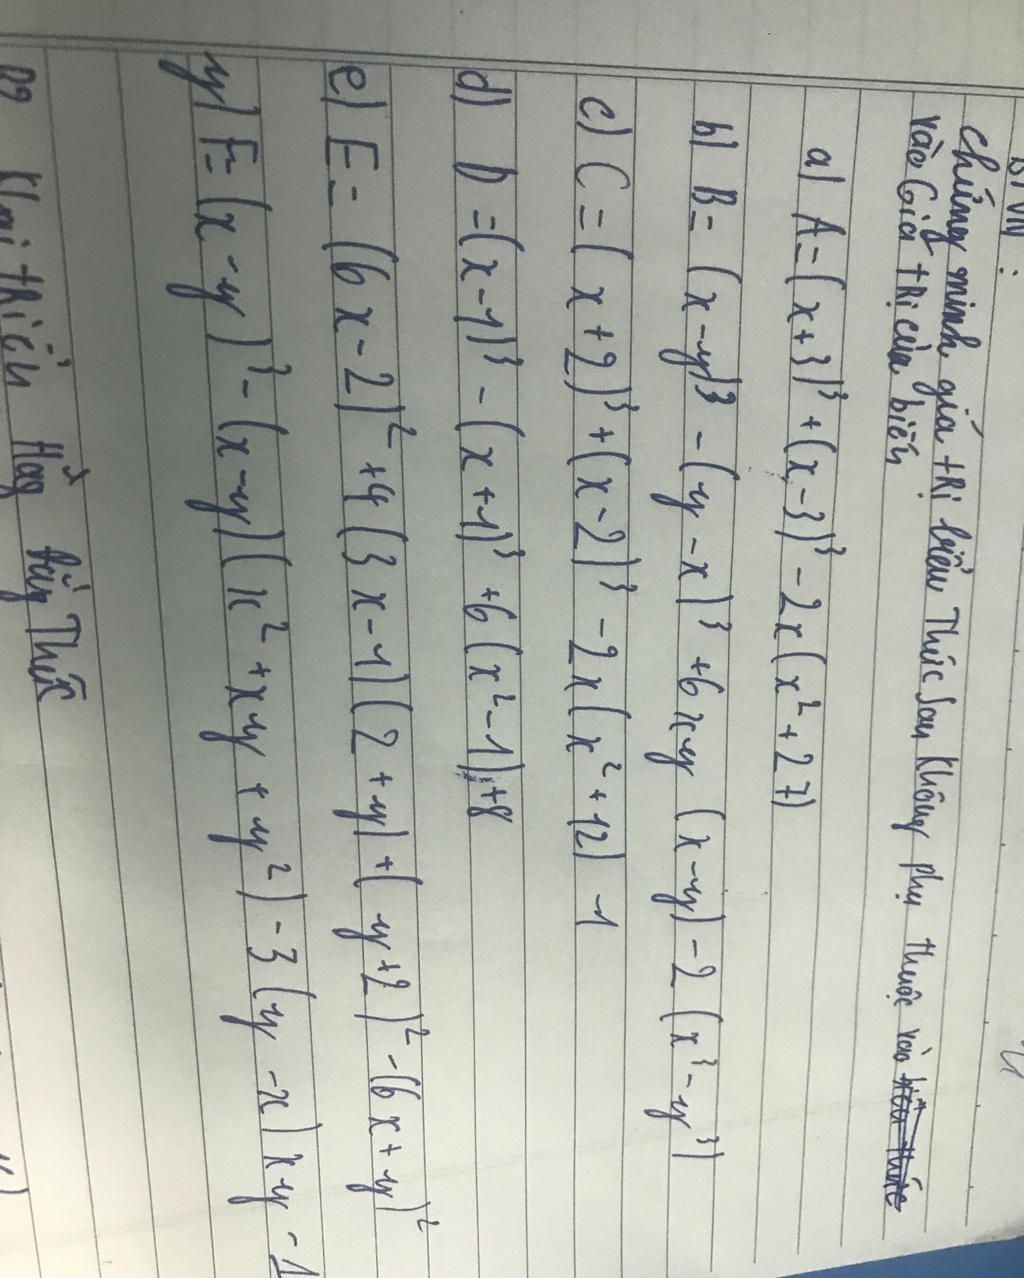 BTVN :
Chứng minh giá trị biểu thức sau không phụ thuộc vào
vào Giá trị của biến
a) A = (x+3)³ + (x-3)³ - 2x(x² + 27)
b) B = (x-y)³ - (y-x)³ + 6xy (x-y) - 2 (x³ - y³)
c) C = (x+2)³ + (x-2)³ - 2x(x² + 12) - 1
d) D = (x-1)³ - (x+1)³ + 6(x² - 1) + 8
e) E = (6x-2)² + 4(3x-1)(2+y) + (y+2)² - (6x+y)²
y) F = (x-y)³ - (x-y)(x² + xy + y²) - 3(y-x)xy - 1
Khai triển Hằng đẳng Thức